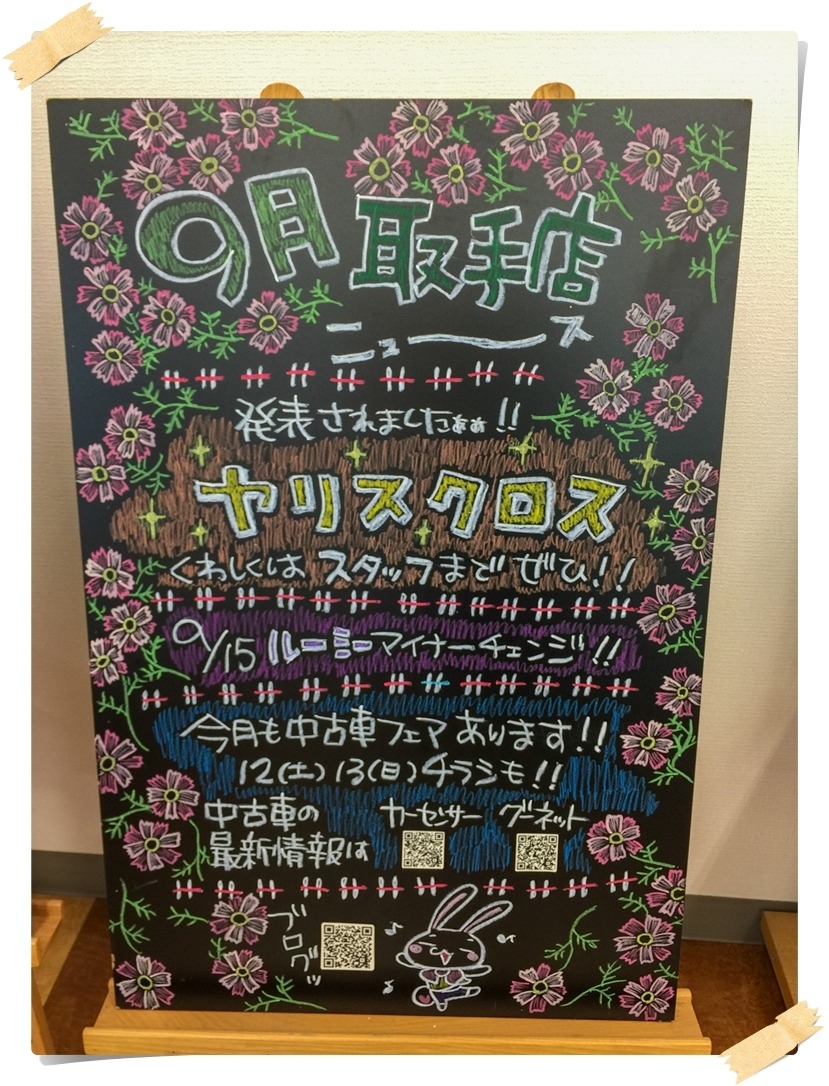 9月 取手店
ニュース
発表されましたぁぁ!!
ヤリスクロス
くわしくは スタッフまで ぜひ!!
9/15 ルーミーマイナーチェンジ!!
今月も中古車フェマあります!!
12(土)13(日)チラシも!!
中古車の
最新情報は
カーセンサー グーネット
ブログッ